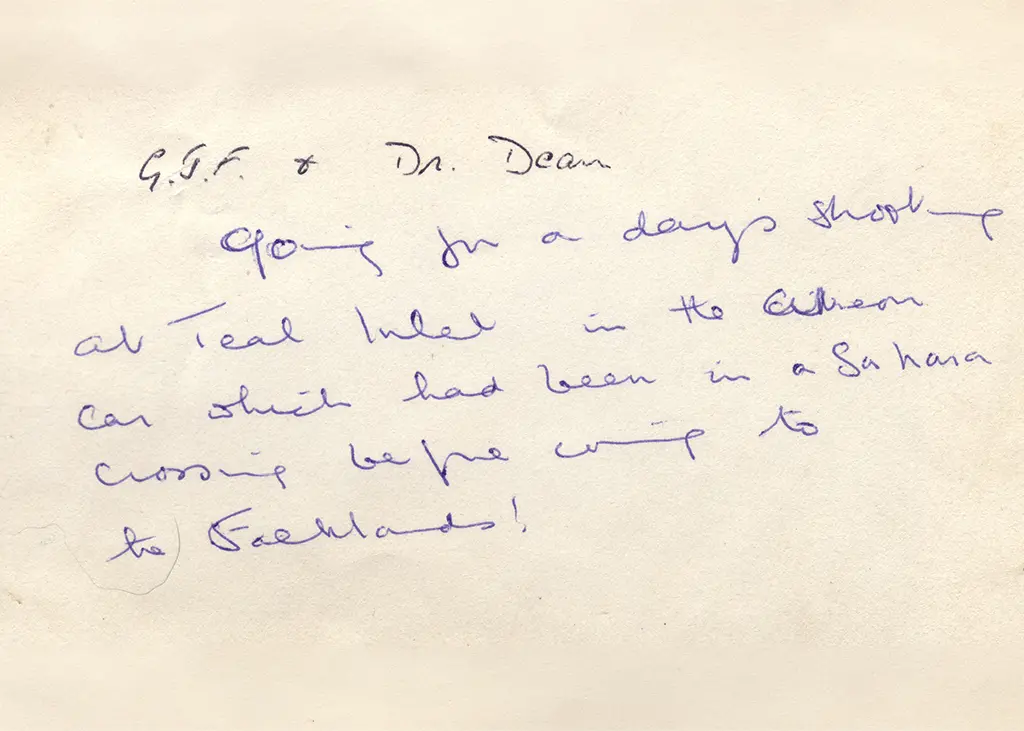 G.J.F. & Dr. Dean
Going for a days shooting
at Teal Inlet in the
car which had been in a Sahara
crossing before coming to
the Falklands!